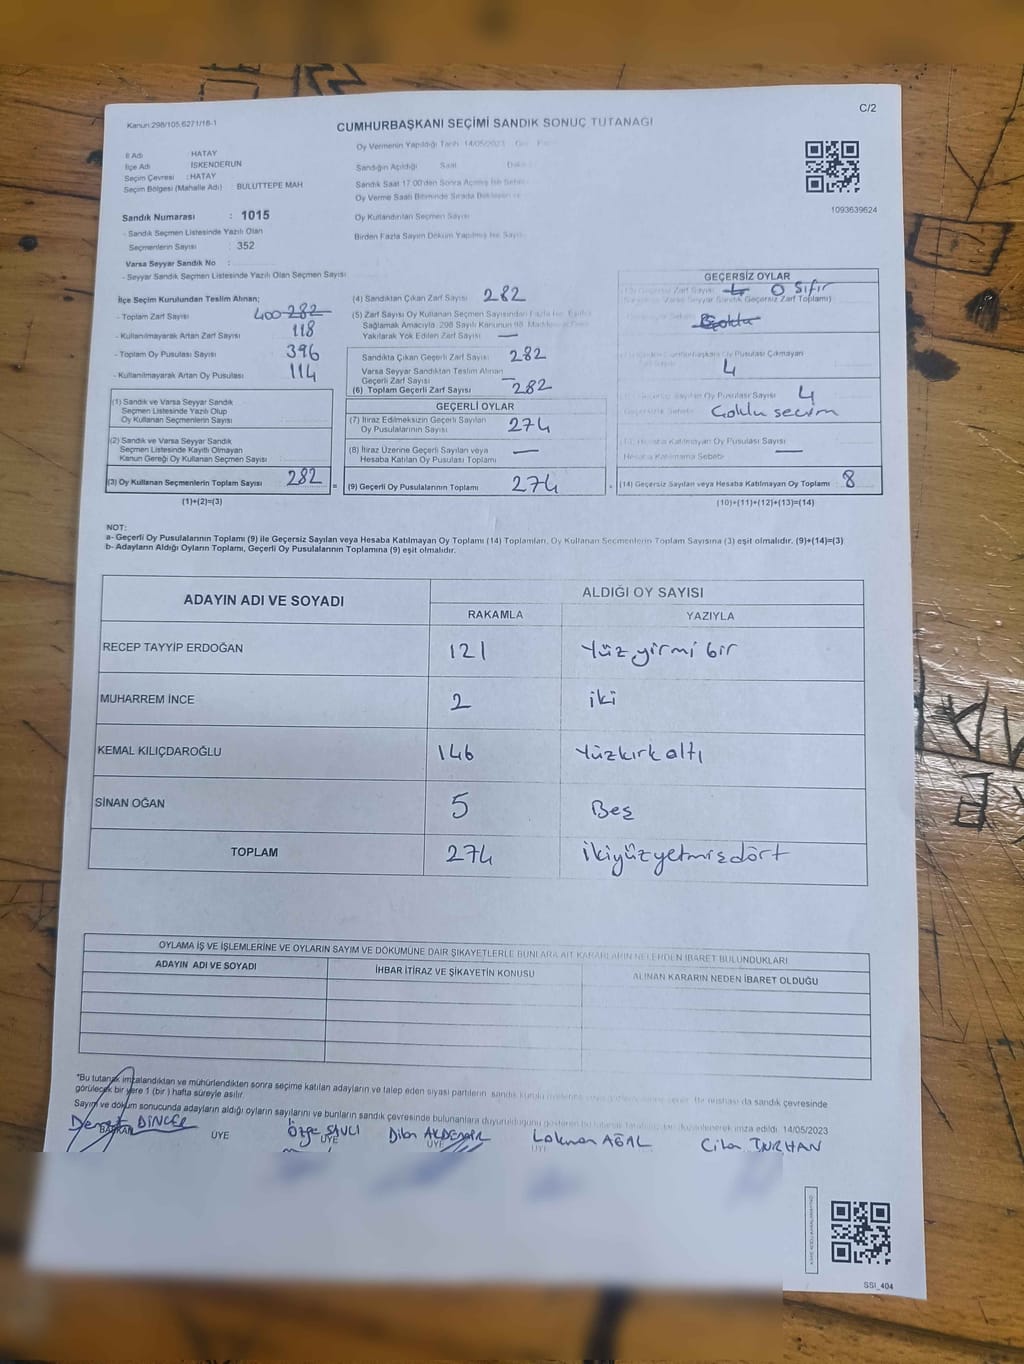 C/2
Kanun:298/105,6271/18-1
CUMHURBAŞKANI SEÇİMİ SANDIK SONUÇ TUTANAĞI
İl Adı : HATAY
İlçe Adı : İSKENDERUN
Seçim Çevresi : HATAY
Seçim Bölgesi (Mahalle Adı) BULUTTEPE MAH
Sandık Numarası : 1015
- Sandık Seçmen Listesinde Yazılı Olan
Seçmenlerin Sayısı : 352
Varsa Seyyar Sandık No :
- Seyyar Sandık Seçmen Listesinde Yazılı Olan Seçmen Sayısı
Oy Vermenin Yapıldığı Tarih 14/05/2023
Sandığın Açıldığı Saat
Sandık Saat 17:00'den Sonra
Oy Verme Saati Bitiminde Sırada
Oy Kullandırılan Seçmen Sayısı
Birden Fazla Sayım Döküm Yapılmış İse
1093639624
İlçe Seçim Kurulundan Teslim Alınan;
- Toplam Zarf Sayısı 400 282
- Kullanılmayarak Artan Zarf Sayısı 118
- Toplam Oy Pusulası Sayısı 396
- Kullanılmayarak Artan Oy Pusulası 114
(1) Sandık ve Varsa Seyyar Sandık
Seçmen Listesinde Yazılı Olup
Oy Kullanan Seçmenlerin Sayısı
(2) Sandık ve Varsa Seyyar Sandık
Seçmen Listesinde Kayıtlı Olmayan
Kanun Gereği Oy Kullanan Seçmen Sayısı
(3) Oy Kullanan Seçmenlerin Toplam Sayısı 282
(1)+(2)=(3)
(4) Sandıktan Çıkan Zarf Sayısı 282
(5) Zarf Sayısı Oy Kullanan Seçmen Sayısından Fazla İse, Eşitliği
Sağlamak Amacıyla, 298 Sayılı Kanunun 98. Maddesi
Yakılarak Yok Edilen Zarf Sayısı —
Sandıkta Çıkan Geçerli Zarf Sayısı 282
Varsa Seyyar Sandıktan Teslim Alınan
Geçerli Zarf Sayısı —
(6) Toplam Geçerli Zarf Sayısı 282
GEÇERLİ OYLAR
(7) İtiraz Edilmeksizin Geçerli Sayılan
Oy Pusulalarının Sayısı 274
(8) İtiraz Üzerine Geçerli Sayılan veya
Hesaba Katılan Oy Pusulası Toplamı —
(9) Geçerli Oy Pusulalarının Toplamı 274
GEÇERSİZ OYLAR
Zarf Sayısı 4 0 Sıfır
Varsa Seyyar Sandık Geçersiz Zarf Toplamı)
Oy Pusulası Çıkmayan
4
Oy Pusulası Sayısı 4
Çoklu seçim
Hesaba Katılmayan Oy Pusulası Sayısı —
Hesaba Katılmama Sebebi
(14) Geçersiz Sayılan veya Hesaba Katılmayan Oy Toplamı 8
(10)+(11)+(12)+(13)=(14)
NOT:
a- Geçerli Oy Pusulalarının Toplamı (9) ile Geçersiz Sayılan veya Hesaba Katılmayan Oy Toplamı (14) Toplamları, Oy Kullanan Seçmenlerin Toplam Sayısına (3) eşit olmalıdır. (9)+(14)=(3)
b- Adayların Aldığı Oyların Toplamı, Geçerli Oy Pusulalarının Toplamına (9) eşit olmalıdır.
ADAYIN ADI VE SOYADI
ALDIĞI OY SAYISI
RAKAMLA YAZIYLA
RECEP TAYYİP ERDOĞAN 121 Yüz yirmi bir
MUHARREM İNCE 2 iki
KEMAL KILIÇDAROĞLU 146 Yüzkırk altı
SİNAN OĞAN 5 Beş
TOPLAM 274 ikiyüzyetmişdört
OYLAMA İŞ VE İŞLEMLERİNE VE OYLARIN SAYIM VE DÖKÜMÜNE DAİR ŞİKAYETLERLE BUNLARA AİT KARARLARIN NELERDEN İBARET BULUNDUKLARI
ADAYIN ADI VE SOYADI İHBAR İTİRAZ VE ŞİKAYETİN KONUSU ALINAN KARARIN NEDEN İBARET OLDUĞU
*Bu tutanak imzalandıktan ve mühürlendikten sonra seçime katılan adayların ve talep eden siyasi partilerin sandık kurulu
bir nüshası da sandık çevresinde
görülecek bir yere 1 (bir) hafta süreyle asılır.
Sayım ve döküm sonucunda adayların aldığı oyların sayılarını ve bunların sandık çevresinde bulunanlara duyurulduğunu gösteren
imza edildi. 14/05/2023
DİNÇER Özge SAVCI Dilan AKDEMİR Lokman AĞAL TURHAN
BAŞKAN ÜYE ÜYE ÜYE ÜYE
SSİ_404